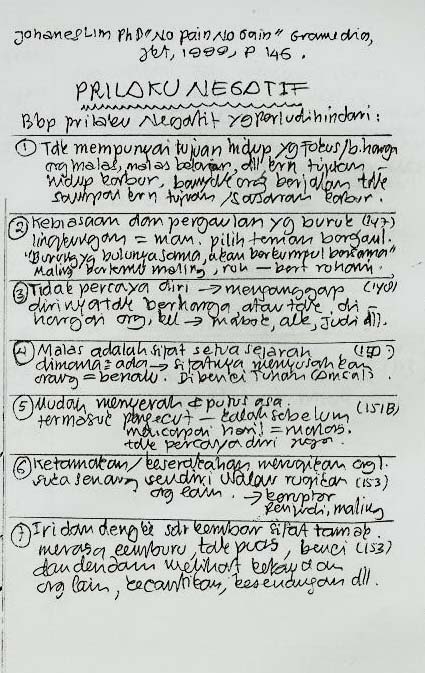 Johanes Lim PhD "No Pain No Gain" Gramedia,
Jkt, 1999, P 146.
PRILAKU NEGATIF
Bbp prilaku Negatif yg perlu dihindari:
① Tdk mempunyai tujuan hidup yg Fokus/b.harga
org malas, malas belajar, dll, krn tujuan
hidup kabur, banyak org berjalan tdk
sampai krn tujuan/sasaran kabur.
② Kebiasaan dan pergaulan yg buruk (147)
lingkungan = man. pilih teman bergaul.
"Burung yg bulunya sama, akan berkumpul bersama"
Maling bertemu maling, roh - bert rohani.
③ Tidak percaya diri → menganggap (148)
dirinya tdk berharga, atau tdk di-
hargai org, kel → mabok, alk, judi dll.
④ Malas adalah sifat setua sejarah (150)
dimana = ada → sifatnya menyusahkan
orang = benalu. Dibenci Tuhan (Amsal).
⑤ Mudah menyerah & putus asa. (151B)
termasuk pengecut - kalah sebelum
mencapai hasil = malas.
tdk percaya diri juga.
⑥ Ketamakan/keserakahan merugikan org l.
suka senang sendiri walau rugikan (153)
org lain. → koruptor
penjudi, maling
⑦ Iri dan dengki sdr kembar sifat tamak.
merasa cemburu, tdk puas, benci (153)
dan dendam melihat kekayaan
org lain, kecantikan, kesenangan dll.